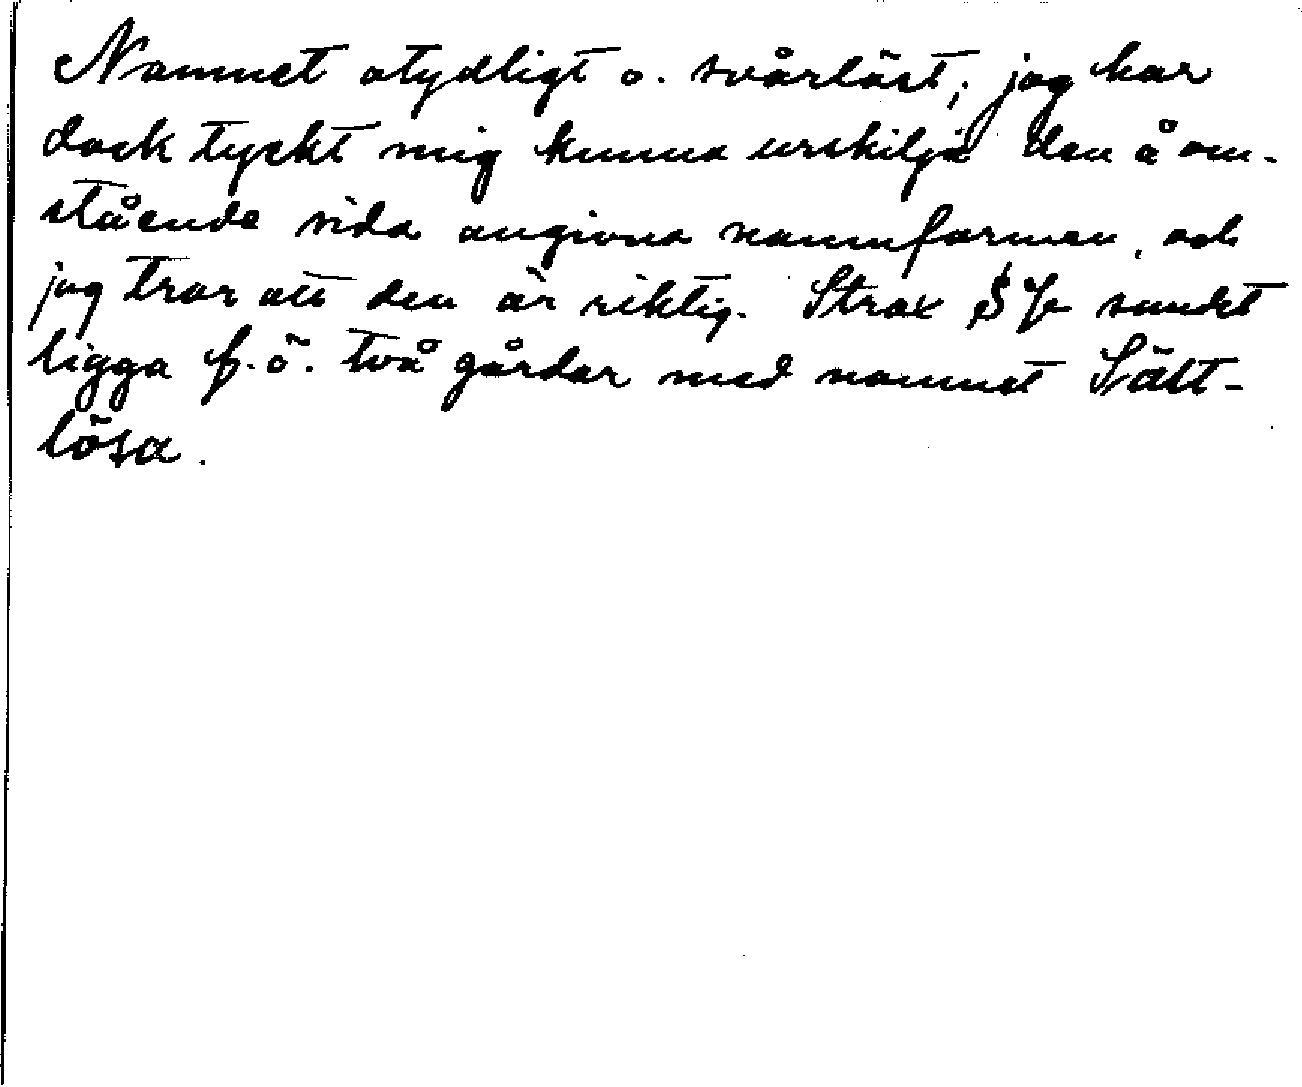 Namnet otydligt o. svårläst, jag har
dock tyckt mig kunna urskilja den å om-
stående sida angivna namnformen, och
jag tror att den är riktig. Strax S % sundet
ligga f. ö. två gårdar med namnet Sätt-
lösa.